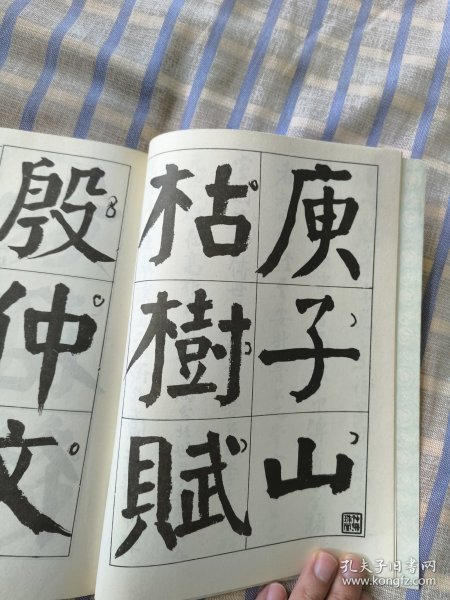 庾子山
枯樹賦
殷仲文
孔夫子旧书网
www.kongfz.com